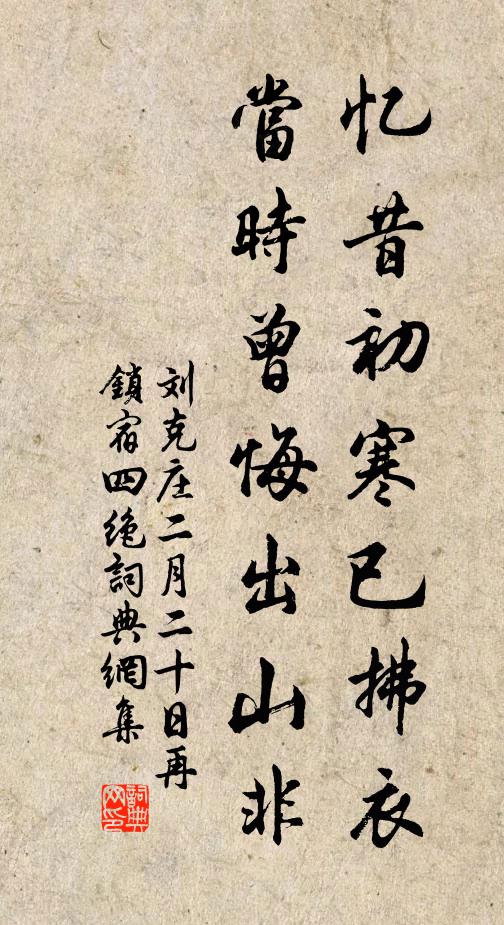 忆昔初寒已拂衣
當時曾悔出山非
刘克庄二月二十日再
鎖宿四绝詞典網集
詞典網印